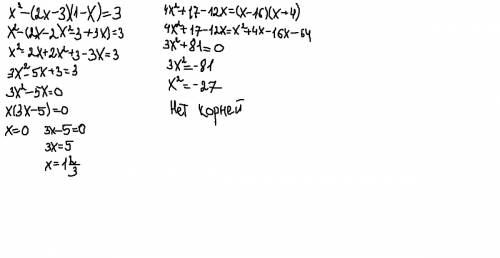 x²-(2x-3)(1-x)=3
x²-(2x-2x²-3+3x)=3
x²-2x+2x²+3-3x=3
3x²-5x+3=3
3x²-5x=0
x(3x-5)=0
x=0 3x-5=0
3x=5
x=1 2/3
4x²+17-12x=(x-16)(x+4)
4x²+17-12x=x²+4x-16x-64
3x²+81=0
3x²=-81
x²=-27
Нет корней